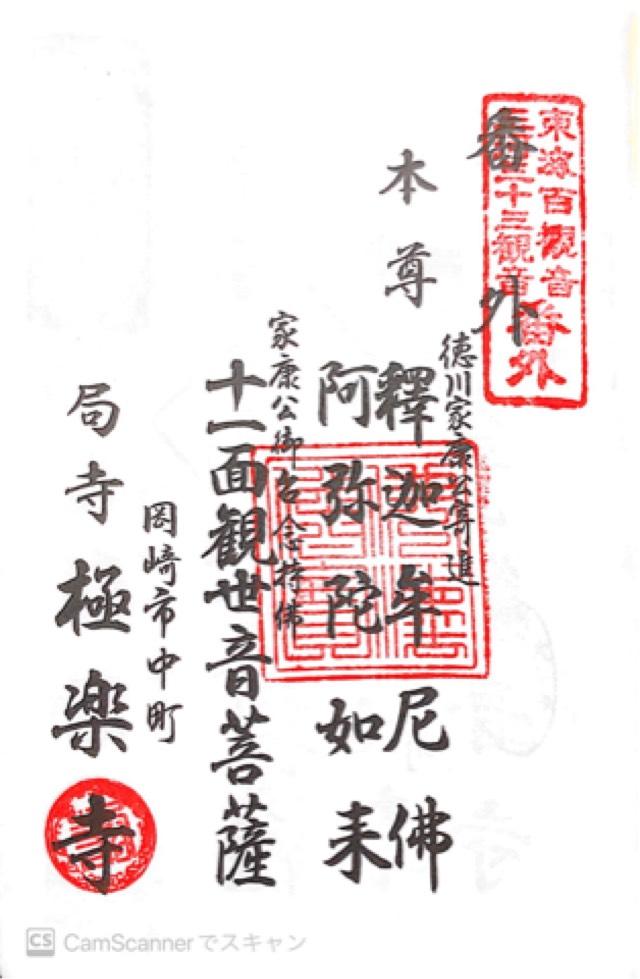 東海百観音
三河三十三観音
番外
番外
徳川家康公寄進
本尊 釋迦牟尼佛
阿弥陀如来
家康公御台念持佛
十一面観世音菩薩
岡崎市中町
局寺 極楽寺
CS CamScannerでスキャン